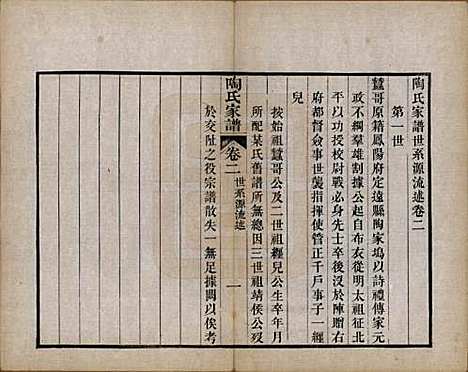 陶氏家譜世系源流述卷二
第一世
蠶哥原籍鳳陽府定遠縣陶家塢以詩禮傳家元
政不綱羣雄割據公起自布衣從明太祖征北
平以功授校尉戰必身先士卒後沒於陣贈右
府都督僉事世襲指揮使管正千戶事子一纏
兒
按始祖蠶哥公及二世祖纏兒公生卒年月
所配某氏舊譜所無總因三世祖靖侯公歿
陶氏家譜
卷二
世系源流述
一
於交阯之役宗譜散失一無足據闕以俟考